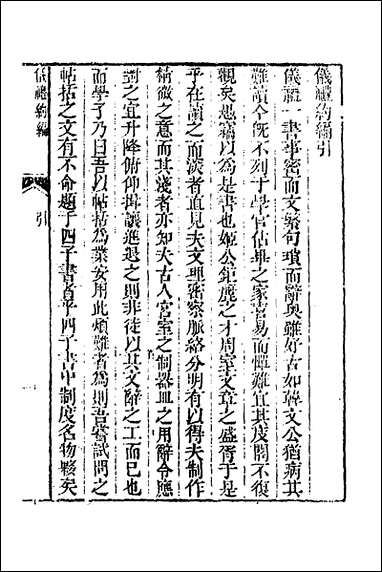 儀禮約編引
儀禮一書事密而文繁句瑣而辭奧雖好古如韓文公猶病其
難讀今旣不列于學官佔畢之家喜易而憚難宜其庋閣不復
觀矣愚竊以為是書也姬公鉅麗之才周室文章之盛胥于是
乎在讀之而淡者直見夫文理密察脈絡分明有以得夫制作
精微之意而其淺者亦知夫古人宮室之制器皿之用辭令應
對之宜升降俯仰揖讓進退之則非徒以其文辭之工而已也
而學子乃曰吾以帖括為業安用此煩難者為則吾嘗試問之
帖括之文有不命題于四子書者乎四子書中制度名物夥矣
儀禮約編
引